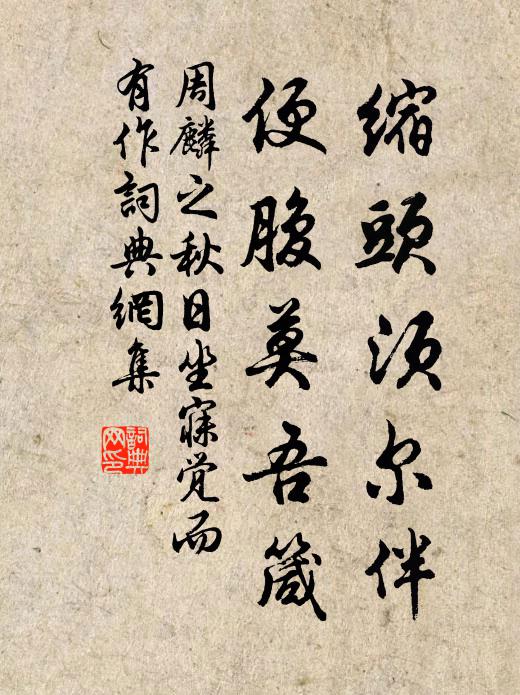 縮頭須尔伴
便腹莫吾箴
周麟之秋日坐寐觉而
有作詞典網集
詞典
网印